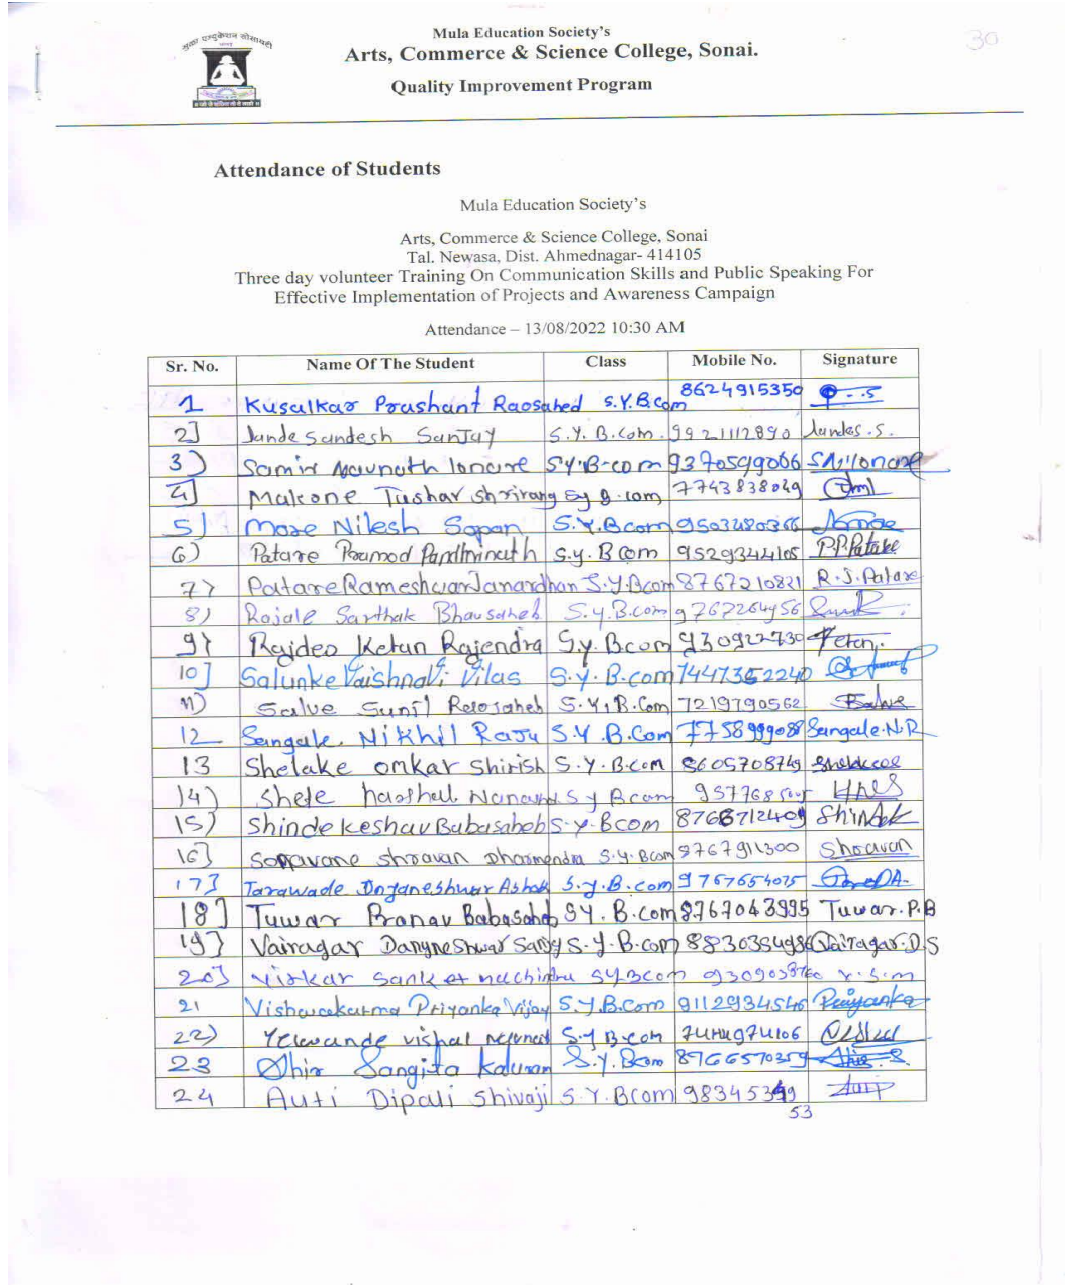 Mula Education Society's
Arts, Commerce & Science College, Sonai.
Quality Improvement Program
30
Attendance of Students
Mula Education Society's
Arts, Commerce & Science College, Sonai
Tal. Newasa, Dist. Ahmednagar- 414105
Three day volunteer Training On Communication Skills and Public Speaking For
Effective Implementation of Projects and Awareness Campaign
Attendance – 13/08/2022 10:30 AM
Sr. No. Name Of The Student Class Mobile No. Signature
1 Kusalkar Prashant Raosahed S.Y.Bcom 8624915350
2] Junde Sandesh Sanjay S.Y. B.Com. 9921112890 Jundes.S.
3) Samir Navnath lonare SY.B-com 9370599066
4] Malcone Tushar Shrirang Sy B.com 7743838049
5) More Nilesh Sopan S.Y.Bcom 9503480366
6) Patare Pramod Pandhrinath S.y. B com 9529344105 P.P.Patare
7) Patare Rameshwar Janardhan S.Y.Bcom 8767210821 R.J.Patare
8) Rajale Sarthak Bhausaheb S.y.B.com 9767264956
9) Rajdeo Ketan Rajendra S.y. Bcom 930922730 Ketan.
10] Salunke Vaishnavi Vilas S.Y.B.com 7447352240
11) Salve Sunil Raosaheb S.Y.B.Com 7219790562
12 Sangale. Nikhil Raju S.Y.B.Com 7758999088 Sangale.N.R
13 Shelake omkar Shirish S.Y.B.com 8605708749
14) Shete harshal S y Bcom
15) Shinde Keshav Babasaheb S.Y.Bcom Shinde K
16] Sonavane shravan Dharmendra S.Y.Bcom 9767911300 Shravan
17] Tarawade Dnyaneshwar Ashok S.y.B.com 9767654075
18] Tuwar Pranav Babasaheb SY. B.com 8767043995 Tuwar.P.B
19] Vairagar Danyneshwar Sanjy S.Y.B.com Vairagar.D.S
20] Virkar Sanket machindra SYBcom V.S.m
21 Vishwakarma Priyanka Vijay S.Y.B.Com 9112934546 Priyanka
22) Yelwande vishal S.Y B.com 7414974106
23 Ohir Sangita Kaluram S.Y. Bcom 8766570359
24 Auti Dipali Shivaji S.Y.Bcom
53